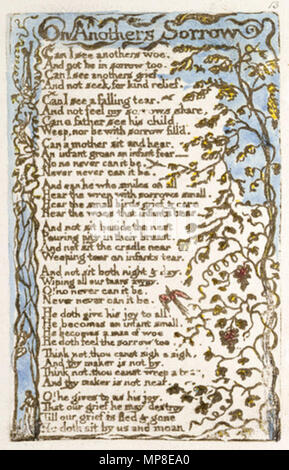 On Anothers Sorrow
Can I see anothers woe,
And not be in sorrow too.
Can I see anothers grief,
And not seek for kind relief.
Can I see a falling tear,
And not feel my sorrows share,
Can a father see his child,
Weep, nor be with sorrow fill'd.
Can a mother sit and hear,
An infant groan an infant fear—
No no never can it be,
Never never can it be.
And can he who smiles on all
Hear the wren with sorrows small,
Hear the small birds grief & care
Hear the woes that infants bear—
And not sit beside the nest
Pouring pity in their breast,
And not sit the cradle near
Weeping tear on infants tear.
And not sit both night & day,
Wiping all our tears away.
O! no never can it be,
Never never can it be.
He doth give his joy to all,
He becomes an infant small,
He becomes a man of woe
He doth feel the sorrow too
Think not, thou canst sigh a sigh,
And thy maker is not by.
Think not, thou canst weep a tear,
And thy maker is not near.
O! he gives to us his joy,
That our grief he may destroy
Till our grief is fled & gone
He doth sit by us and moan
alamy
www.alamy.com - MP8EA0